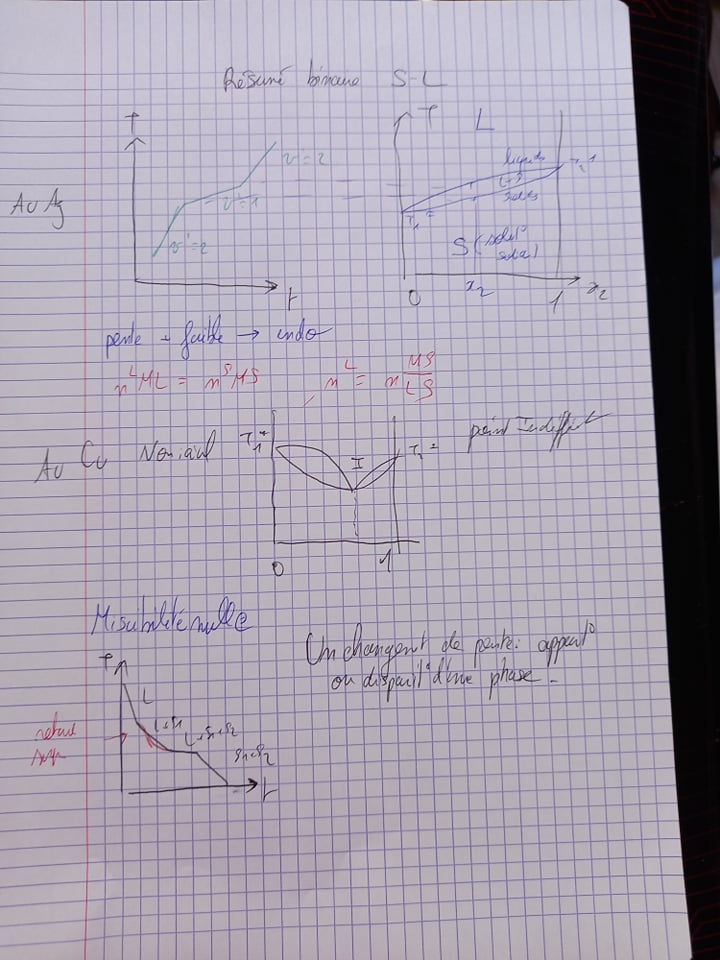 Résumé binaire S-L
Au Ag
T
v'=2
v'=1
v'=2
t
T
L
liquids
L+S
solidus
T2*
T1*
S (solut°
solid)
0
x2
1
x2
pente + faible → endo
n^L ML = n^S MS
n^L = n MS/LS
Au Cu Non idéal
T1*
I
T2*
point Indifft
0
1
Miscibilité nulle
Un changent de pente: apparit°
ou disparit° d'une phase.
T
L
L+S1
L+S1+S2
S1+S2
t
retard